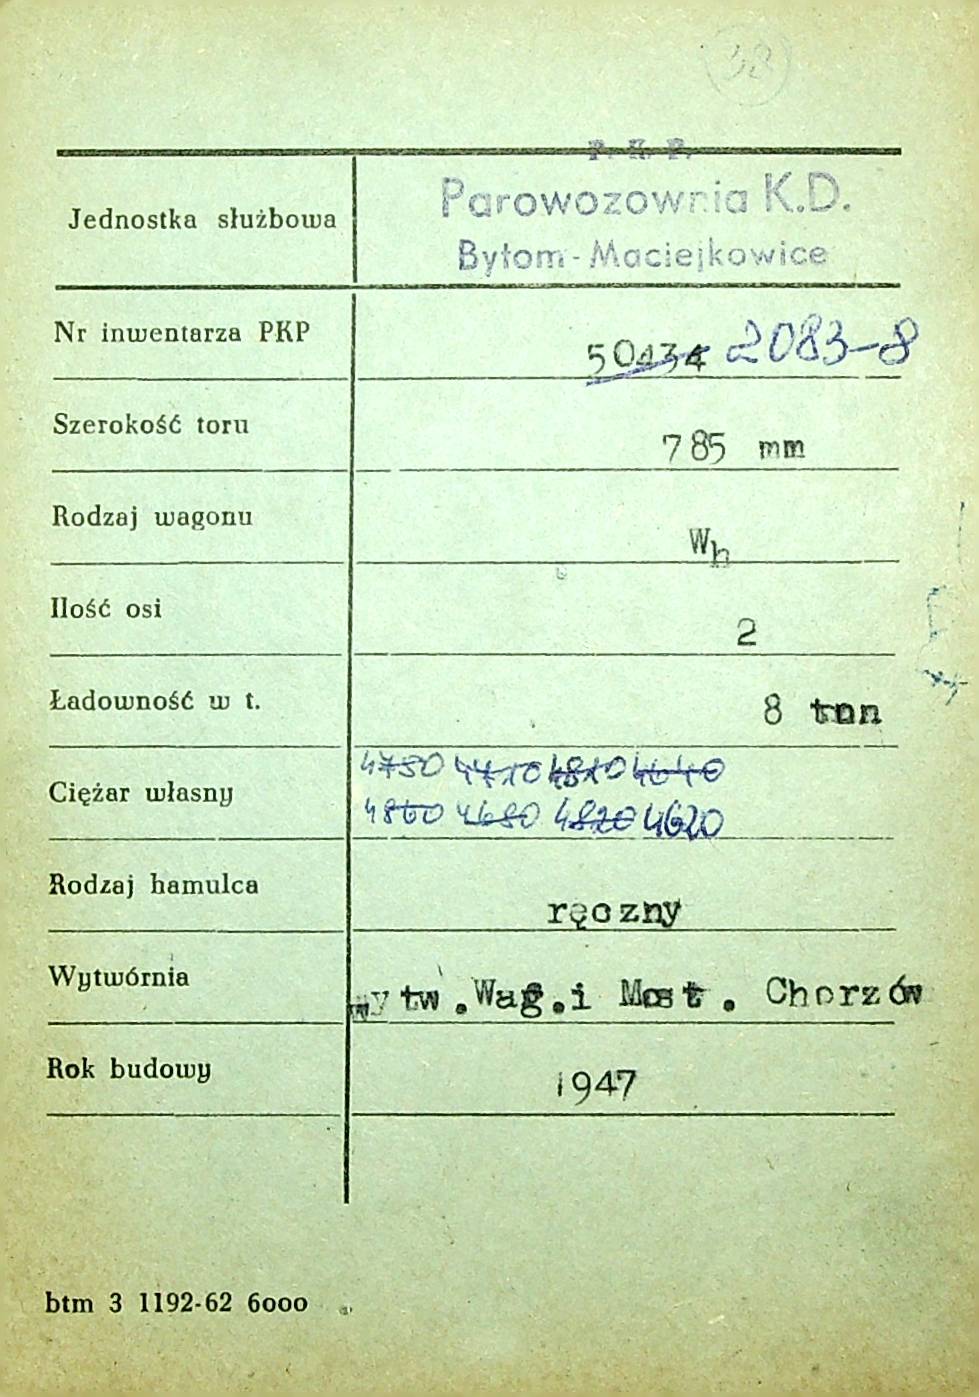 38
P. K. P.
Jednostka służbowa Parowozownia K.D.
Bytom-Maciejkowice
Nr inwentarza PKP 50434 2083-8
Szerokość toru 785 mm
Rodzaj wagonu Wh
Ilość osi 2
Ładowność w t. 8 tnn
4750 4710 4810 4640
Ciężar własny
4860 4680 4820 4620
Rodzaj hamulca ręczny
Wytwórnia wytw.Wag.i Most. Chorzów
Rok budowy 1947
btm 3 1192-62 6000